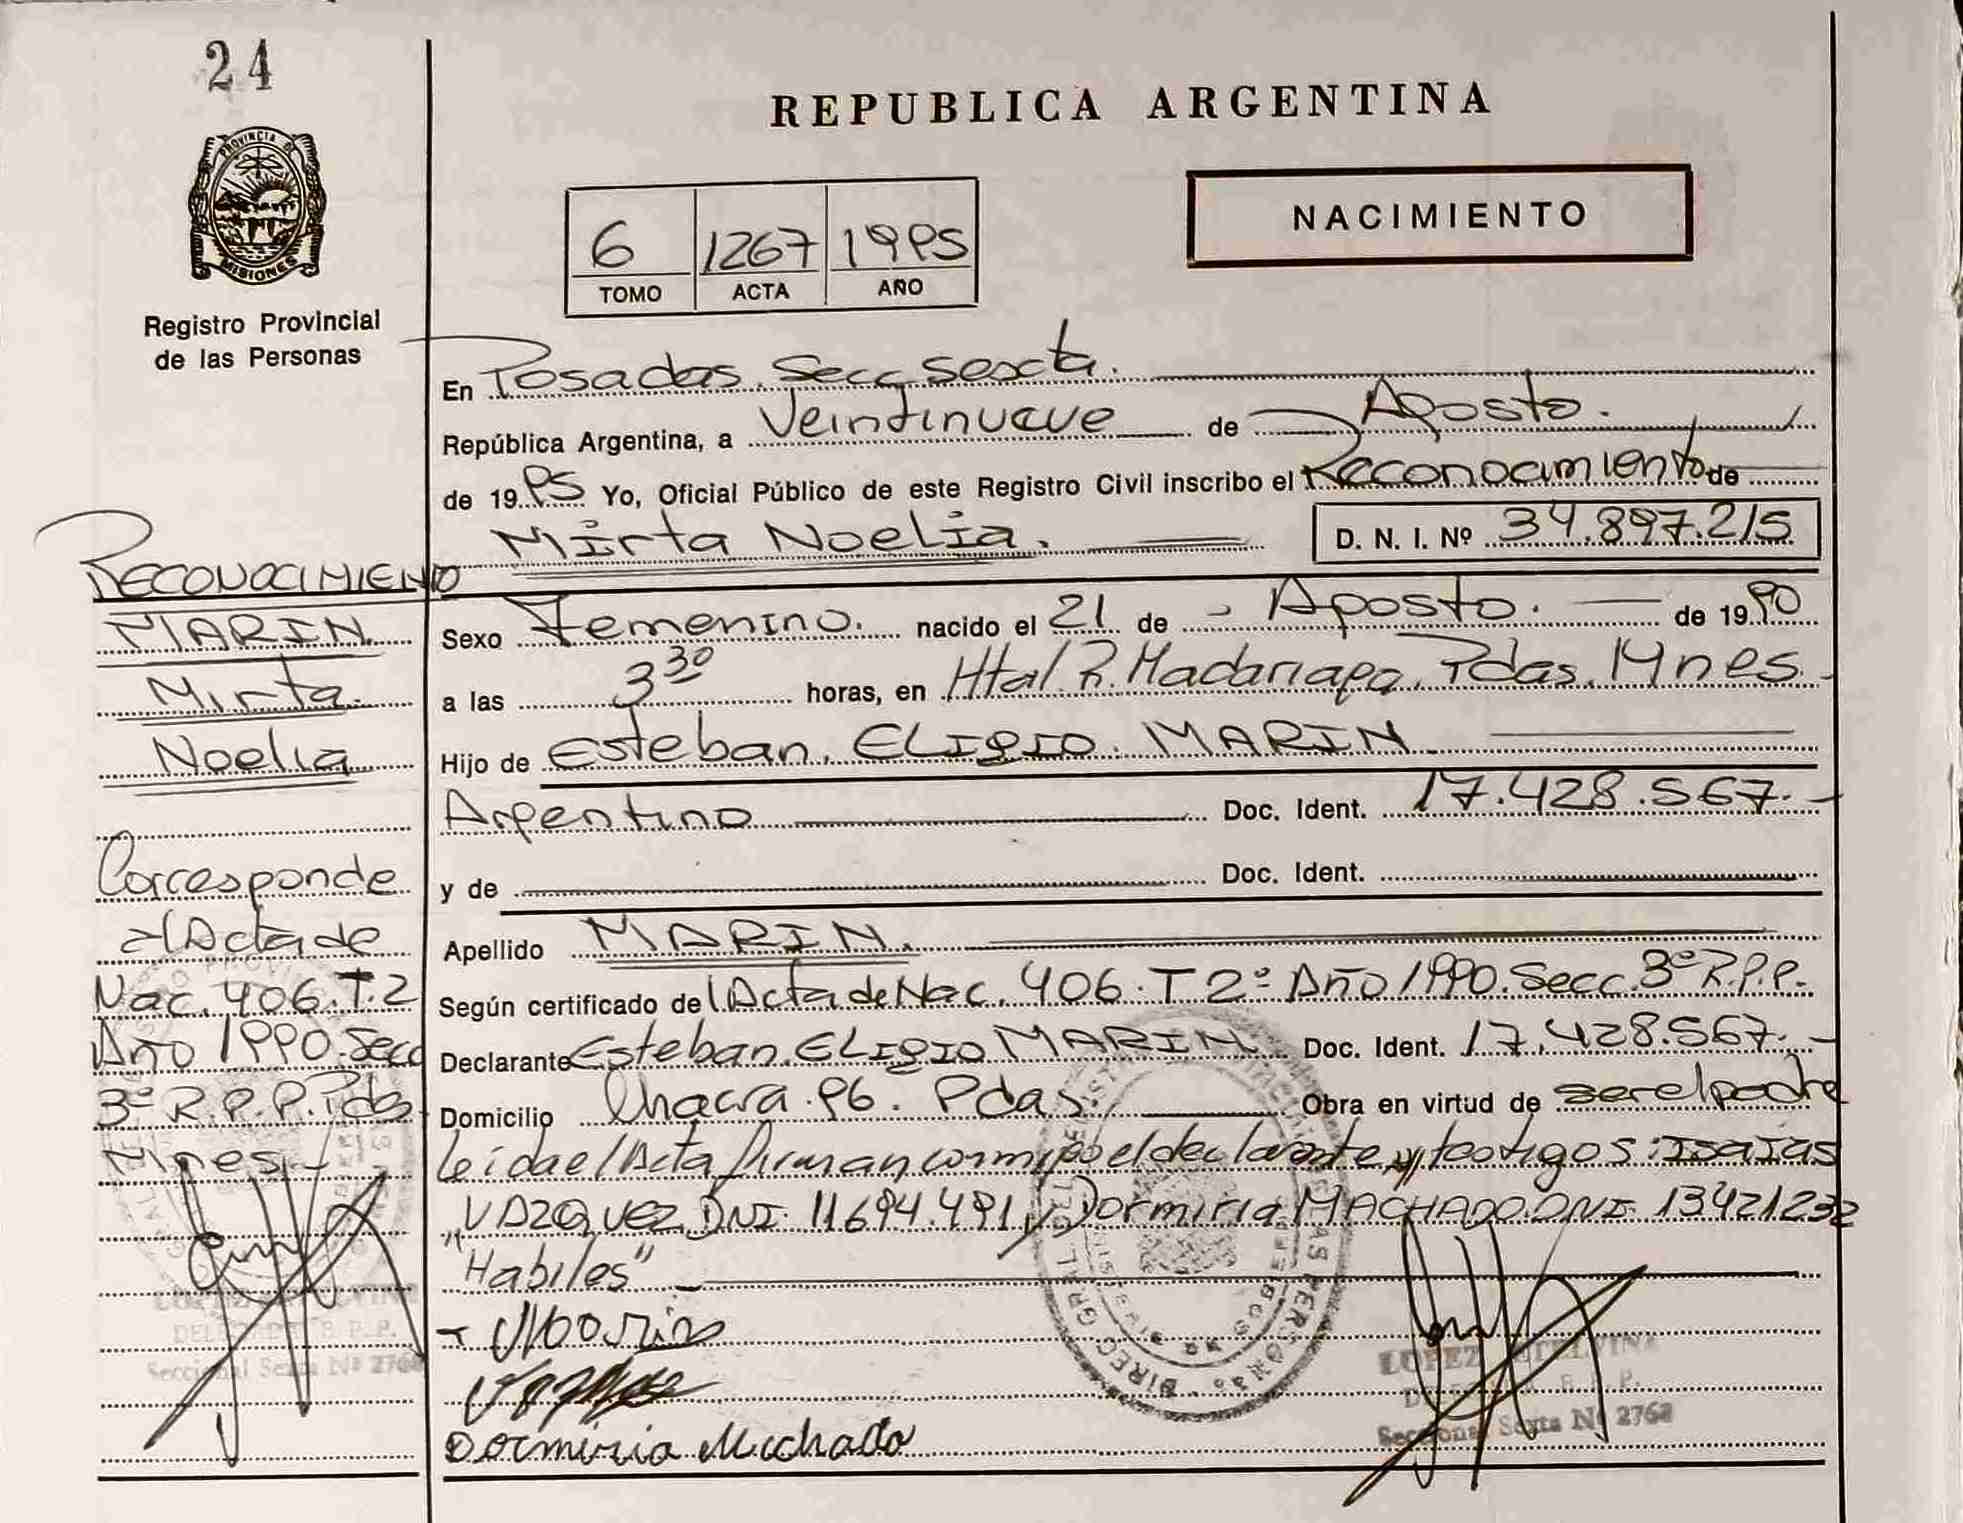 24
PROVINCIA DE
MISIONES
Registro Provincial
de las Personas
REPUBLICA ARGENTINA
NACIMIENTO
6 1267 1995
TOMO ACTA AÑO
En Posadas. Secc Sexta.
República Argentina, a Veintinueve de Agosto.
de 1995 Yo, Oficial Público de este Registro Civil inscribo el Reconocimiento de
Mirta Noelia. D. N. I. Nº 34.897.215
Sexo Femenino. nacido el 21 de Agosto. de 1990
a las 3 30 horas, en Htal R. Madariaga. Pdas. Mnes.
Hijo de Esteban. ELIGIO. MARIN
Argentino Doc. Ident. 17.428.567.
y de Doc. Ident.
Apellido MARIN.
Según certificado de l Acta de Nac. 406. T 2º Año 1990. Secc. 3º R.P.P.
Declarante Esteban. ELIGIO MARIN. Doc. Ident. 17.428.567.
Domicilio Chacra. 96. Pdas. Obra en virtud de ser el padre
Leída el Acta firman conmigo el declarante y testigos: ISAIAS
VAZQUEZ DNI. 11694.491 y Dormiria MACHADO. DNI. 13421232
"Habiles"
Dormiria Machado
LOPEZ ETELVINA
DELEGADA R. P. P.
Seccional Sexta Nº 2768
RECONOCIMIENTO
MARIN
Mirta
Noelia
Corresponde
al Acta de
Nac. 406. T. 2
Año 1990. Secc
3º R.P.P. Pdas
Mnes.
LOPEZ ETELVINA
DELEGADA R. P. P.
Seccional Sexta Nº 2768